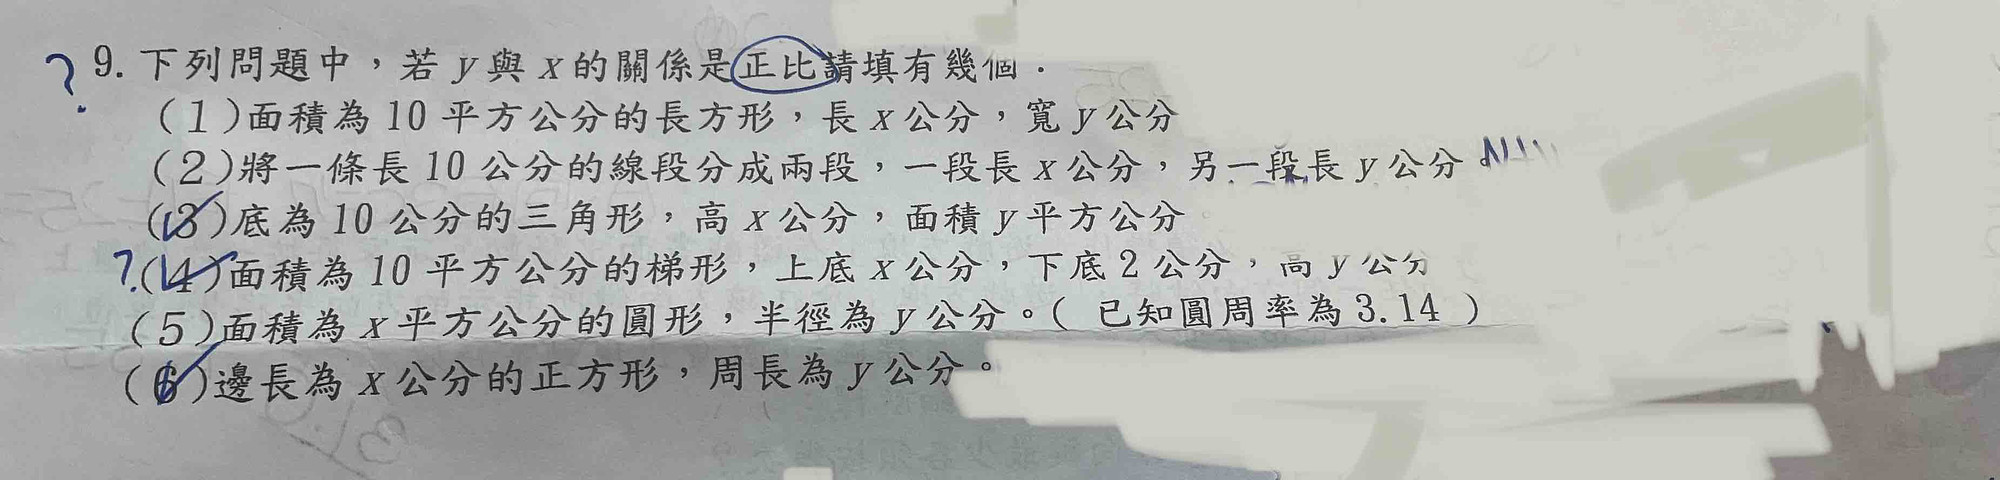 ? 9. 下列問題中，若 y 與 x 的關係是正比請填有幾個．
(1)面積為 10 平方公分的長方形，長 x 公分，寬 y 公分
(2)將一條長 10 公分的線段分成兩段，一段長 x 公分，另一段長 y 公分
(3)底為 10 公分的三角形，高 x 公分，面積 y 平方公分
?(4)面積為 10 平方公分的梯形，上底 x 公分，下底 2 公分，高 y 公分
(5)面積為 x 平方公分的圓形，半徑為 y 公分。( 已知圓周率為 3.14 )
(6)邊長為 x 公分的正方形，周長為 y 公分。